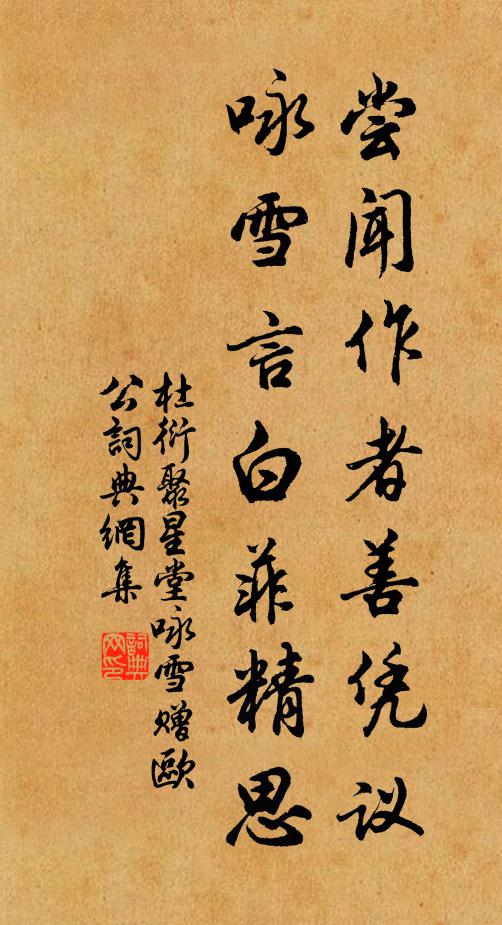 尝闻作者善凭议
咏雪言白菲精思
杜衍聚星堂咏雪赠歐
公詞典網集
詞典网印